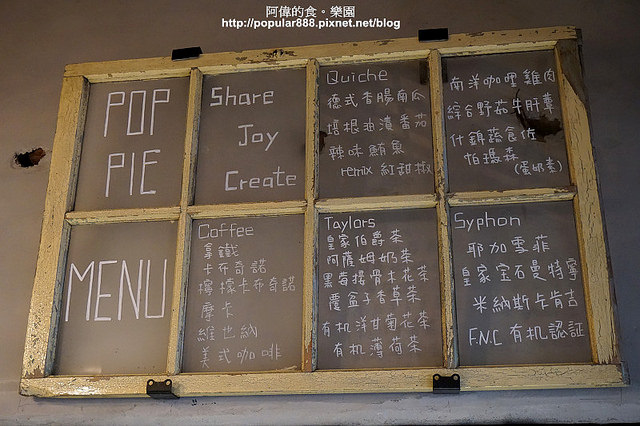 阿偉的食。樂園
http://popular888.pixnet.net/blog
POP
PIE
Share
Joy
Create
Quiche
德式香腸南瓜
培根油漬番茄
辣味鮪魚
remix 紅甜椒
南洋咖哩雞肉
綜合野菇牛肝蕈
什錦蔬食佐
帕瑪森
(蛋奶素)
MENU
Coffee
拿鐵
卡布奇諾
檸檬卡布奇諾
摩卡
維也納
美式咖啡
Taylors
皇家伯爵茶
阿薩姆奶茶
黑莓接骨木花茶
覆盆子香草茶
有机洋甘菊花茶
有机薄荷茶
Syphon
耶加雪菲
皇家宝石曼特寧
米納斯卡肯古
F.N.C 有机認証